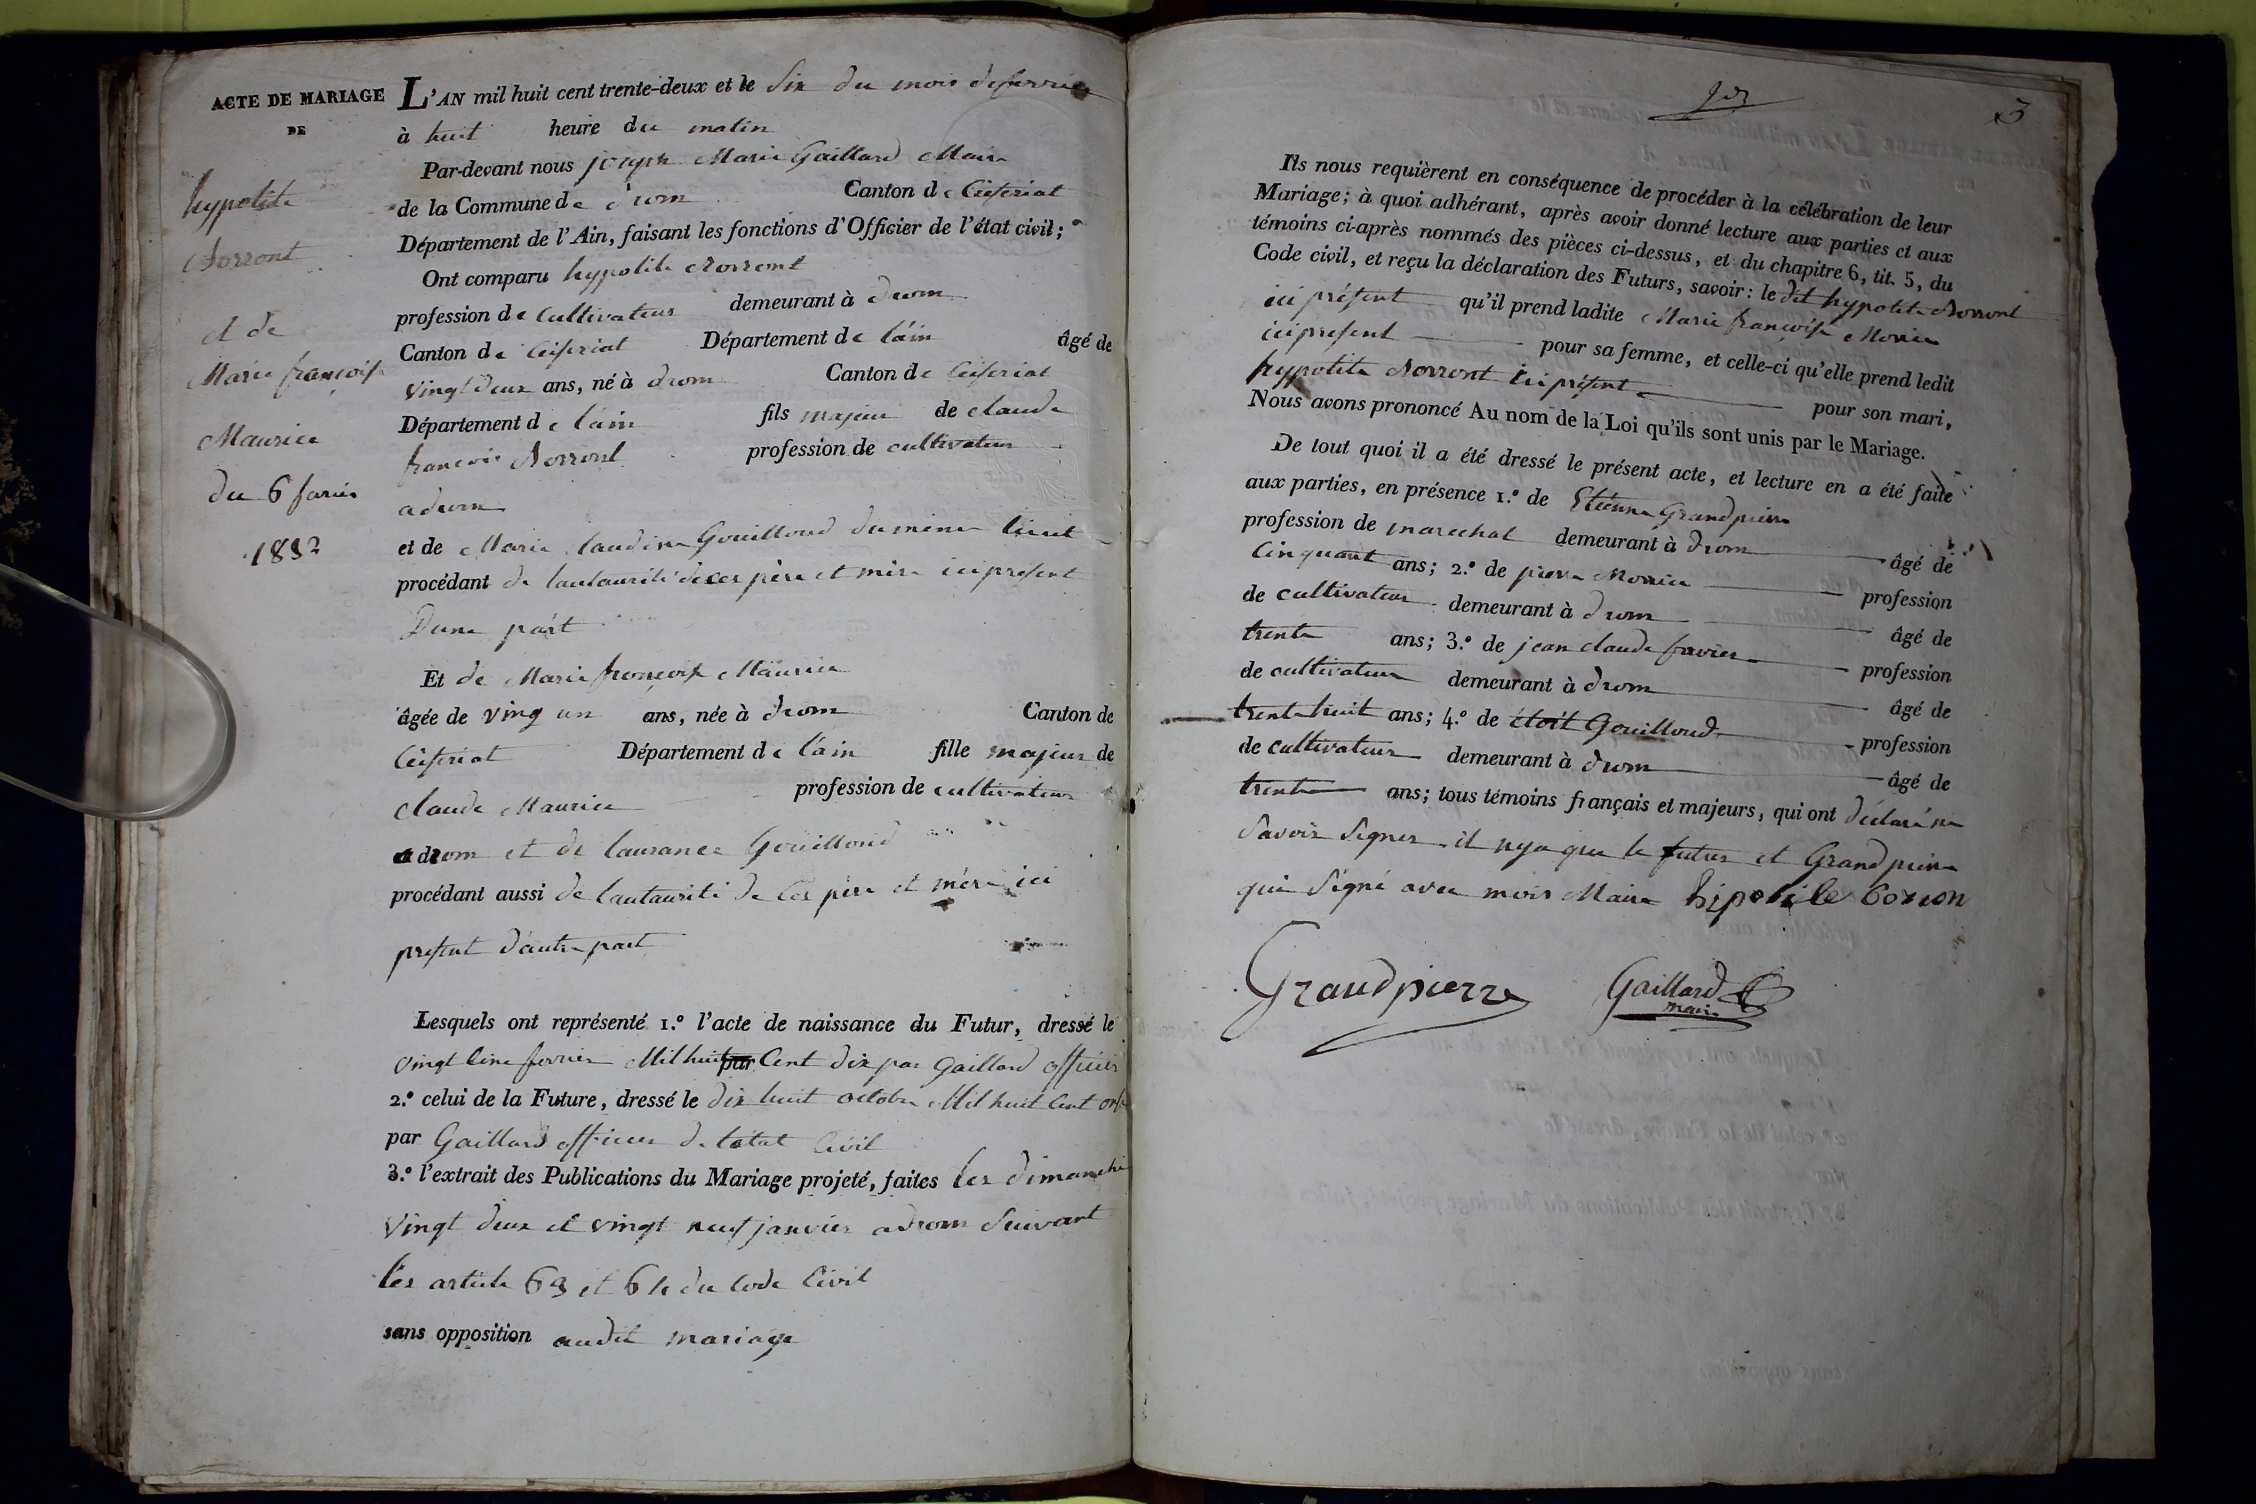 ACTE DE MARIAGE
DE
hypolite
Borront
et de
Marie françoise
Maurice
du 6 favrier
1832
L'AN mil huit cent trente-deux et le Six du mois de fervrier
à huit heure du matin
Par-devant nous joseph Marie Gaillard Maire
de la Commune de drom Canton de Ceiseriat
Département de l'Ain, faisant les fonctions d'Officier de l'état civil;
Ont comparu hypolite Borront
profession de Cultivateur demeurant à drom
Canton de Ceiseriat Département de l'ain âgé de
vingt deux ans, né à drom Canton de Ceiseriat
Département de l'ain fils majeur de claude
françois Borront profession de cultivateur
a drom
et de Marie Gouilloud du même lieut
procédant de lautaurité de ces père et mère ici present
Dune part
Et de Marie françoise Maurice
âgée de ving un ans, née à drom Canton de
Ceiseriat Département de l'ain fille majeur de
claude Maurice profession de cultivateur
a drom et de laurance Gouilloud
procédant aussi de lautaurité de Ces père et mère ici
present d'autre part
Lesquels ont représenté 1.º l'acte de naissance du Futur, dressé le
vingt Cinc fervrier Mil huit par Cent dix par Gaillard officier
2.º celui de la Future, dressé le dix huit octobre Mil huit Cent
par Gaillard officier de l'etat Civil
3.º l'extrait des Publications du Mariage projeté, faites les dimanche
vingt deux et vingt neuf janvier a drom Suivant
les article 63 et 64 du Code Civil
sans opposition audit mariage
3
Ils nous requièrent en conséquence de procéder à la célébration de leur
Mariage; à quoi adhérant, après avoir donné lecture aux parties et aux
témoins ci-après nommés des pièces ci-dessus, et du chapitre 6, tit. 5, du
Code civil, et reçu la déclaration des Futurs, savoir: le dit hypolite Borront
ici présent qu'il prend ladite Marie françoise Morice
ici present pour sa femme, et celle-ci qu'elle prend ledit
hypolite Borront ici présent pour son mari,
Nous avons prononcé Au nom de la Loi qu'ils sont unis par le Mariage.
De tout quoi il a été dressé le présent acte, et lecture en a été faite
aux parties, en présence 1.º de Etienne Grandpierre
profession de marechal demeurant à drom âgé de
Cinquant ans; 2.º de pierre Morice profession
de cultivateur demeurant à drom âgé de
trente ans; 3.º de jean claude favier profession
de cultivateur demeurant à drom âgé de
trente huit ans; 4.º de Gouilloud profession
de cultivateur demeurant à drom âgé de
trente ans; tous témoins français et majeurs, qui ont déclaré ne
Savoir Signer il nya que le futur et Grandpierre
qui Signé avec mois Maire hipolile Boron
Grandpierre Gaillard
maire